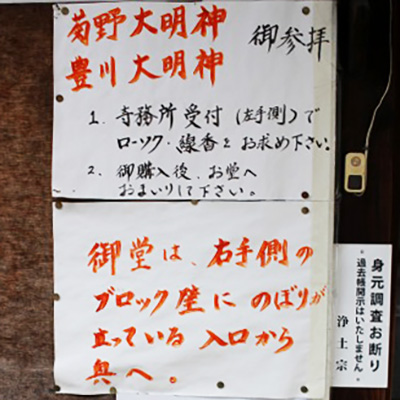 菊野大明神
豊川大明神
御参拝
1. 寺務所受付(左手側)で
ローソク・線香をお求め下さい。
2. 御購入後、お堂へ
おまいりして下さい。
御堂は、右手側の
ブロック壁にのぼりが
立っている入口から
奥へ。
身元調査お断り
・過去帳開示はいたしません。
浄土宗